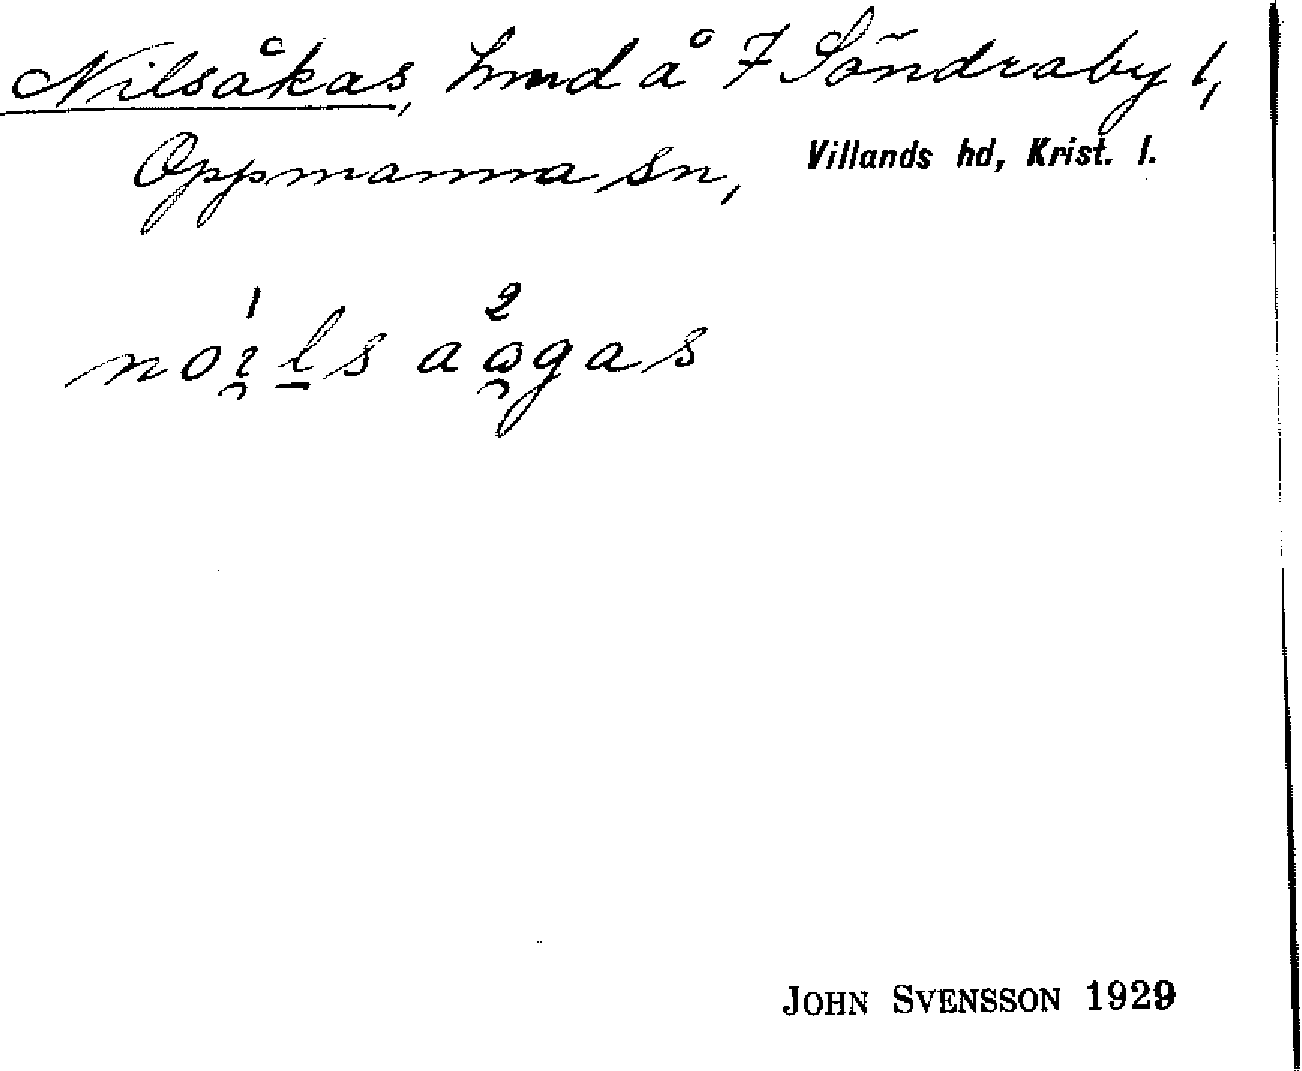 Nilsåkas, hmd å 7 Söndraby 1,
Oppmanna sn, Villands hd, Krist. l.
JOHN SVENSSON 1929